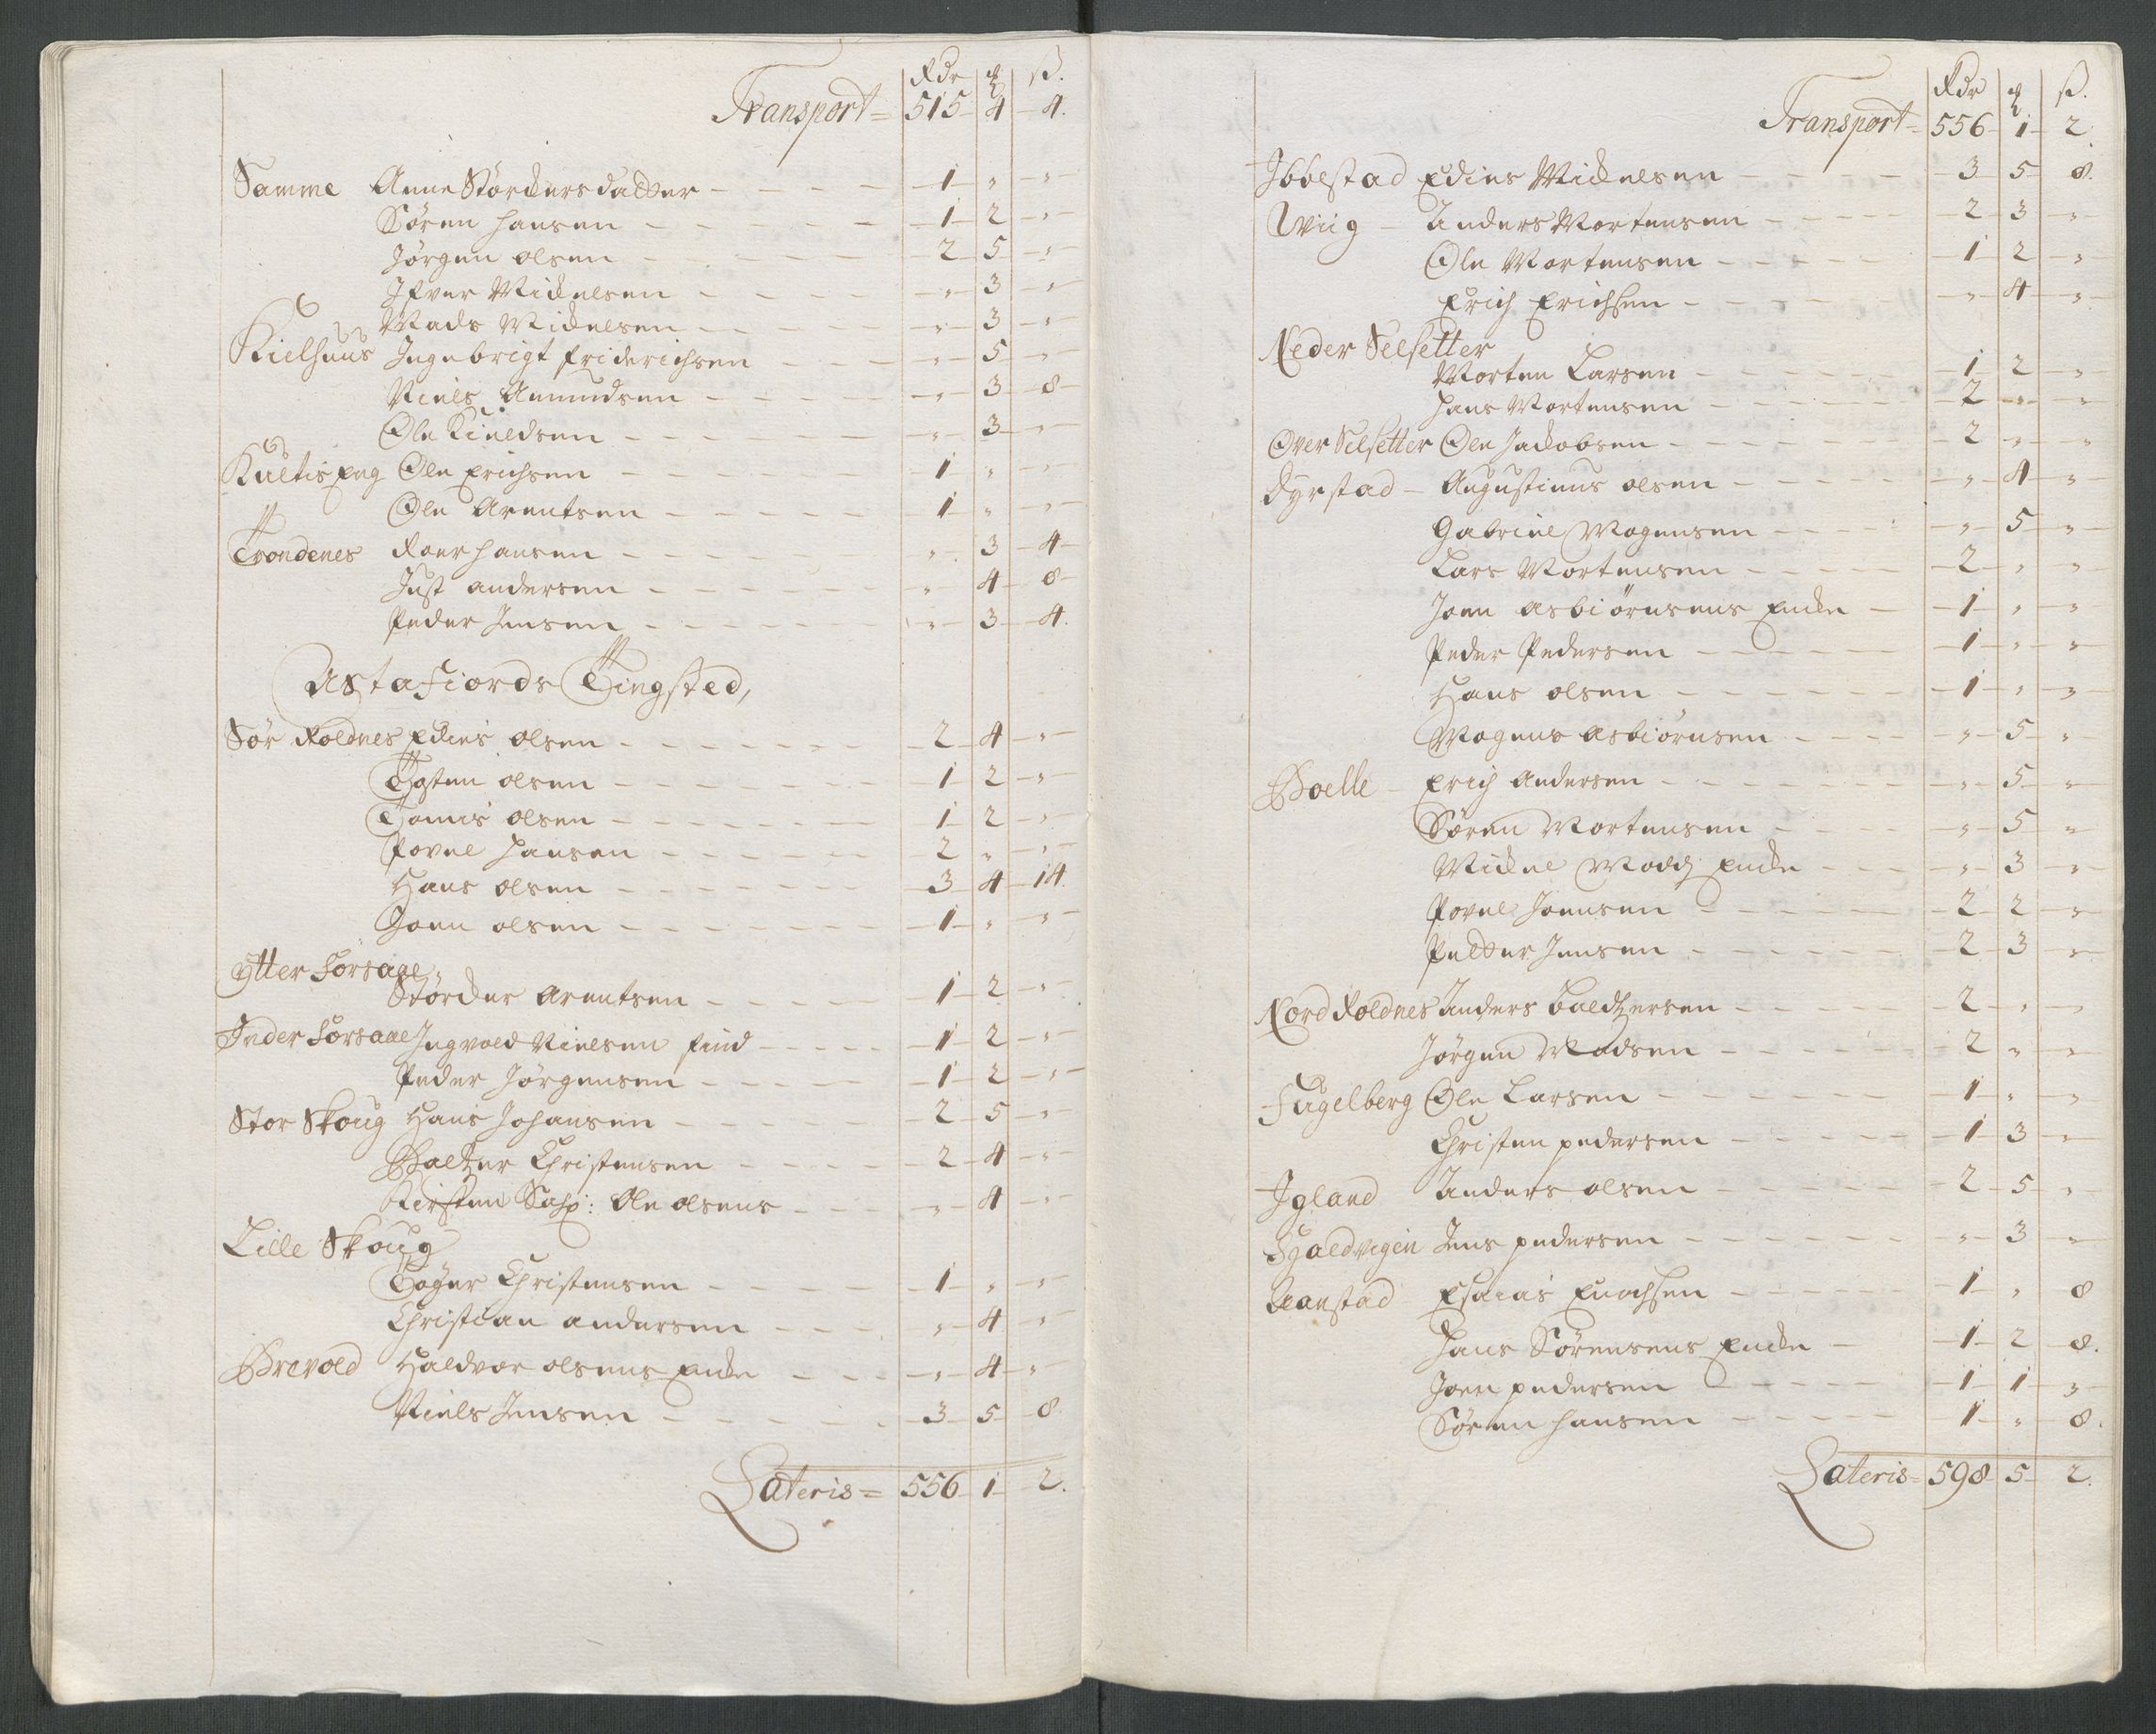 Rdr ꝗ ß.
Transport = 515 - 4 - 4.
Samme Anne Størckersdatter - 1 - " - "
Søren Hansen - 1 - 2 - "
Jørgen Olsen - 2 - 5 - "
Ifver Mickelsen - " - 3 - "
Mads Mickelsen - " - 3 - "
Kielhuus Ingebrigt Friderichsen - " - 5 - "
Niels Amundsen - " - 3 - 8
Ole Kieldsen - " - 3 - "
Kultis Eng Ole Erichsen - 1 - " - "
Ole Arentsen - 1 - " - "
Trondenes Roer Hansen - " - 3 - 4
Just Andersen - " - 4 - 8
Peder Jensen - " - 3 - 4.
Astafiords Tingsted,
Sør Roldnes Edies Olsen - 2 - 4 - "
Tosten Olsen - 1 - 2 - "
Tomis Olsen - 1 - 2 - "
Povel Hansen - 2 - " - "
Hans Olsen - 3 - 4 - 14.
Joen Olsen - 1 - " - "
Ytter Forsaae
Størcker Arentsen - 1 - 2 - "
Inder Forsaae Ingvold Nielsen Find - 1 - 2 - "
Peder Jørgensen - 1 - 2 - "
Stor Skoug Hans Johansen - 2 - 5 - "
Baltzer Christensen - 2 - 4 - "
Kirsten Sahl: Ole Olsens - " - 4 - "
Lille Skoug
Toger Christensen - 1 - " - "
Christian Andersen - " - 4 - "
Brevold Haldvor Olsens Encke - " - 4 - "
Niels Jensen - 3 - 5 - 8
Lateris = 556 - 1 - 2.
Rdr ꝗ ß.
Transport = 556 - 1 - 2.
Ibbestad Edies Mickelsen - 3 - 5 - 8.
Wiig - Anders Mortensen - 2 - 3 - "
Ole Mortensen - 1 - 2 - "
Erich Erichsen - " - 4 - "
Neder Selsetter
Morten Larsen - 1 - 2 - "
Hans Mortensen - 2 - " - "
Over Selsetter Ole Jackobsen - 2 - " - "
Dyrstad - Augustinus Olsen - " - 4 - "
Gabriel Mogensen - " - 5 - "
Lars Mortensen - 2 - " - "
Joen Asbiørnsens Encke - 1 - " - "
Peder Pedersen - 1 - " - "
Hans Olsen - 1 - " - "
Mogens Asbiørnsen - " - 5 - "
Bolle - Erich Andersen - " - 5 - "
Søren Mortensen - " - 5 - "
Mickel Encke - " - 3 - "
Povel Joensen - 2 - 2 - "
Petter Jensen - 2 - 3 - "
Nord Roldnes Anders Baltzersen - 2 - " - "
Jørgen Madsen - 2 - " - "
Fugelberg Ole Larsen - 1 - " - "
Christen Pedersen - 1 - 3 - "
Igland Anders Olsen - 2 - 5 - "
Jens Pedersen - " - 3 - "
Aanstad Esaias Enochsen - 1 - " - 8
Hans Sørensens Encke - 1 - 2 - 8.
Joen Pedersen - 1 - 1 - "
Søren Hansen - 1 - " - 8.
Lateris = 598 - 5 - 2.